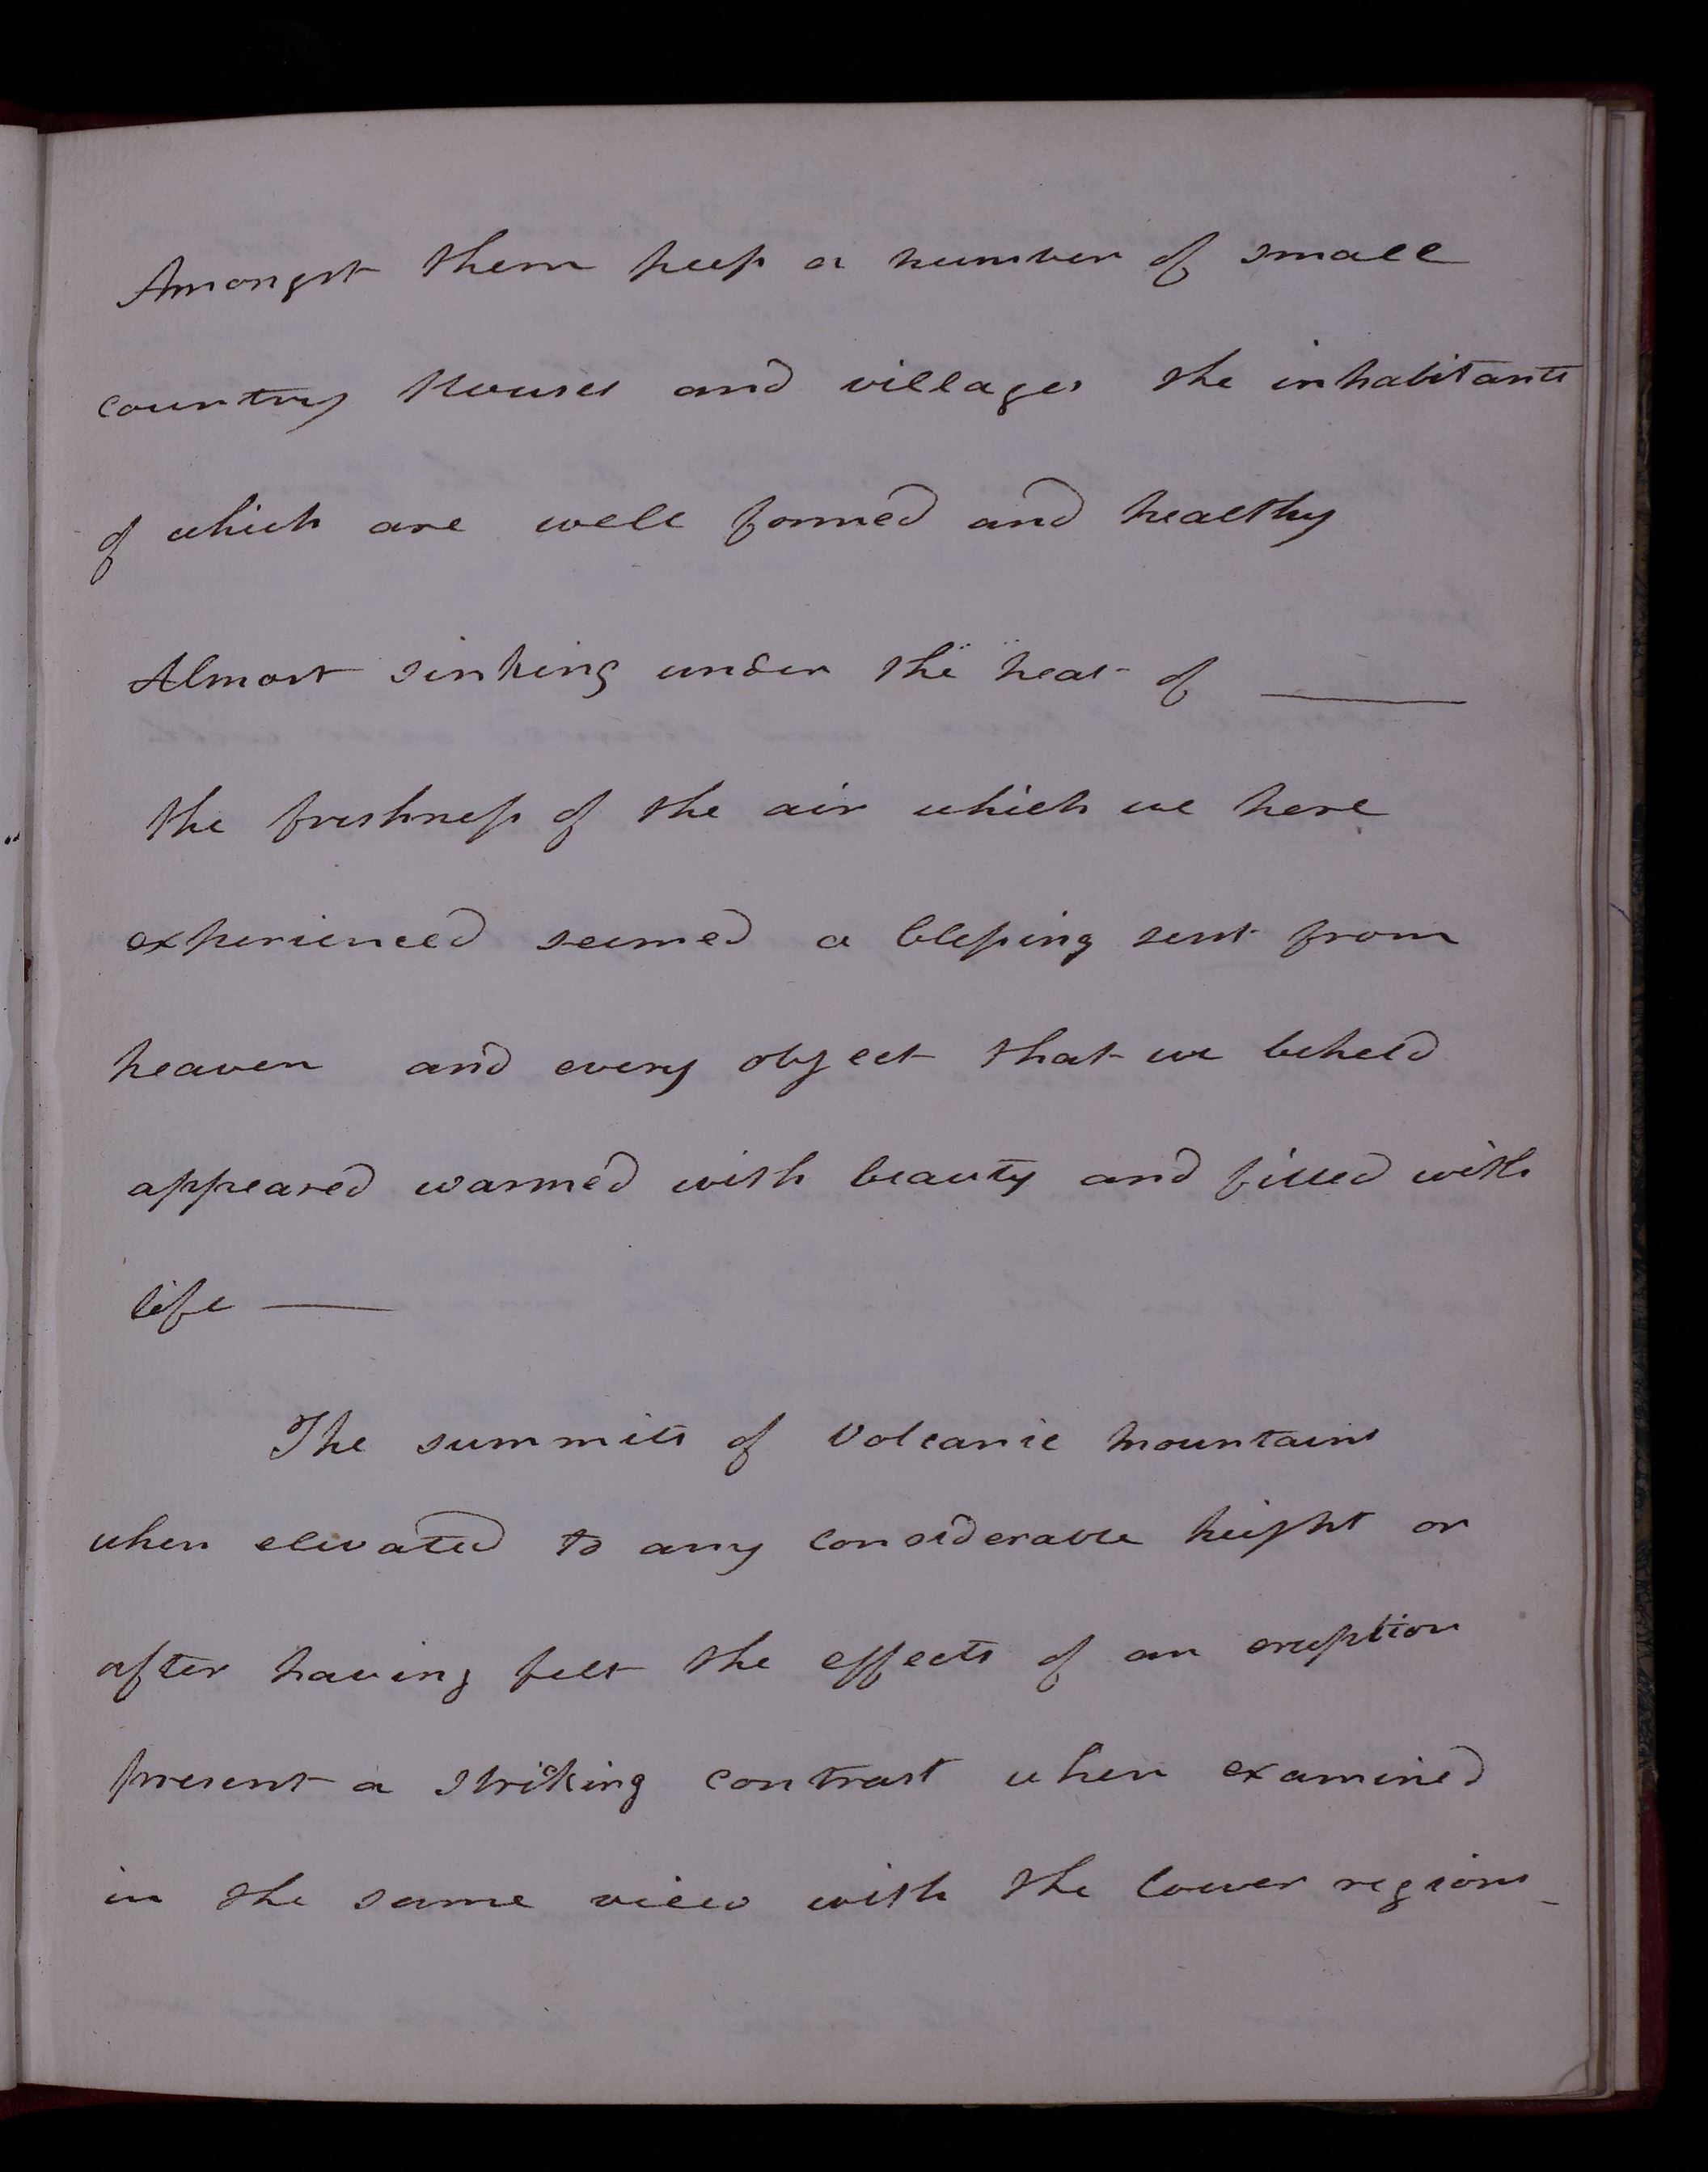 Amongst them peep a number of small
country Houses and villages the inhabitants
of which are well formed and healthy
Almost sinking under the heat of ———
the freshness of the air which we here
experienced seemed a blessing sent from
heaven and every object that we beheld
appeared warmed with beauty and filled with
life ———
The summits of Volcanic mountains
when elevated to any considerable height or
after having felt the effects of an eruption
present a striking contrast when examined
in the same view with the lower regions_